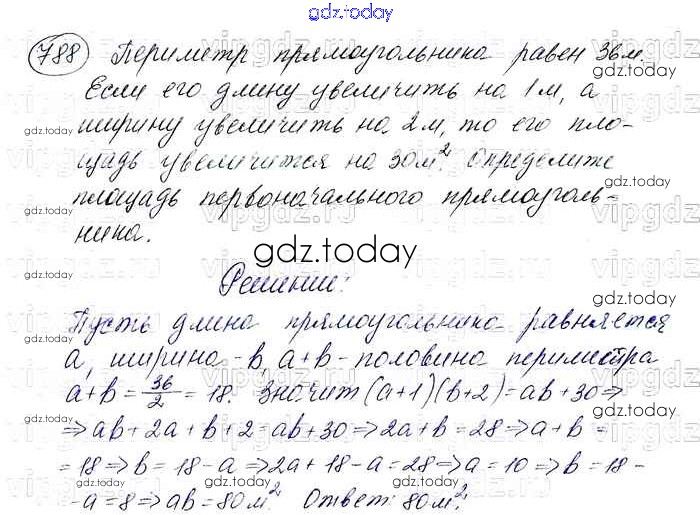 gdz.today
788 Периметр прямоугольника равен 36 м.
Если его длину увеличить на 1 м, а
ширину увеличить на 2 м, то его пло-
щадь увеличится на 30 м². Определите
площадь первоначального прямоуголь-
ника.
gdz.today
Решение:
Пусть длина прямоугольника равняется
a, ширина - b, a+b - половина периметра
a+b = 36/2 = 18. Значит (a+1)(b+2) = ab+30 ⇒
⇒ ab+2a+b+2 = ab+30 ⇒ 2a+b = 28 ⇒ a+b =
= 18 ⇒ b = 18-a ⇒ 2a+18-a = 28 ⇒ a = 10 ⇒ b = 18-
-a = 8 ⇒ ab = 80 м². Ответ: 80 м².